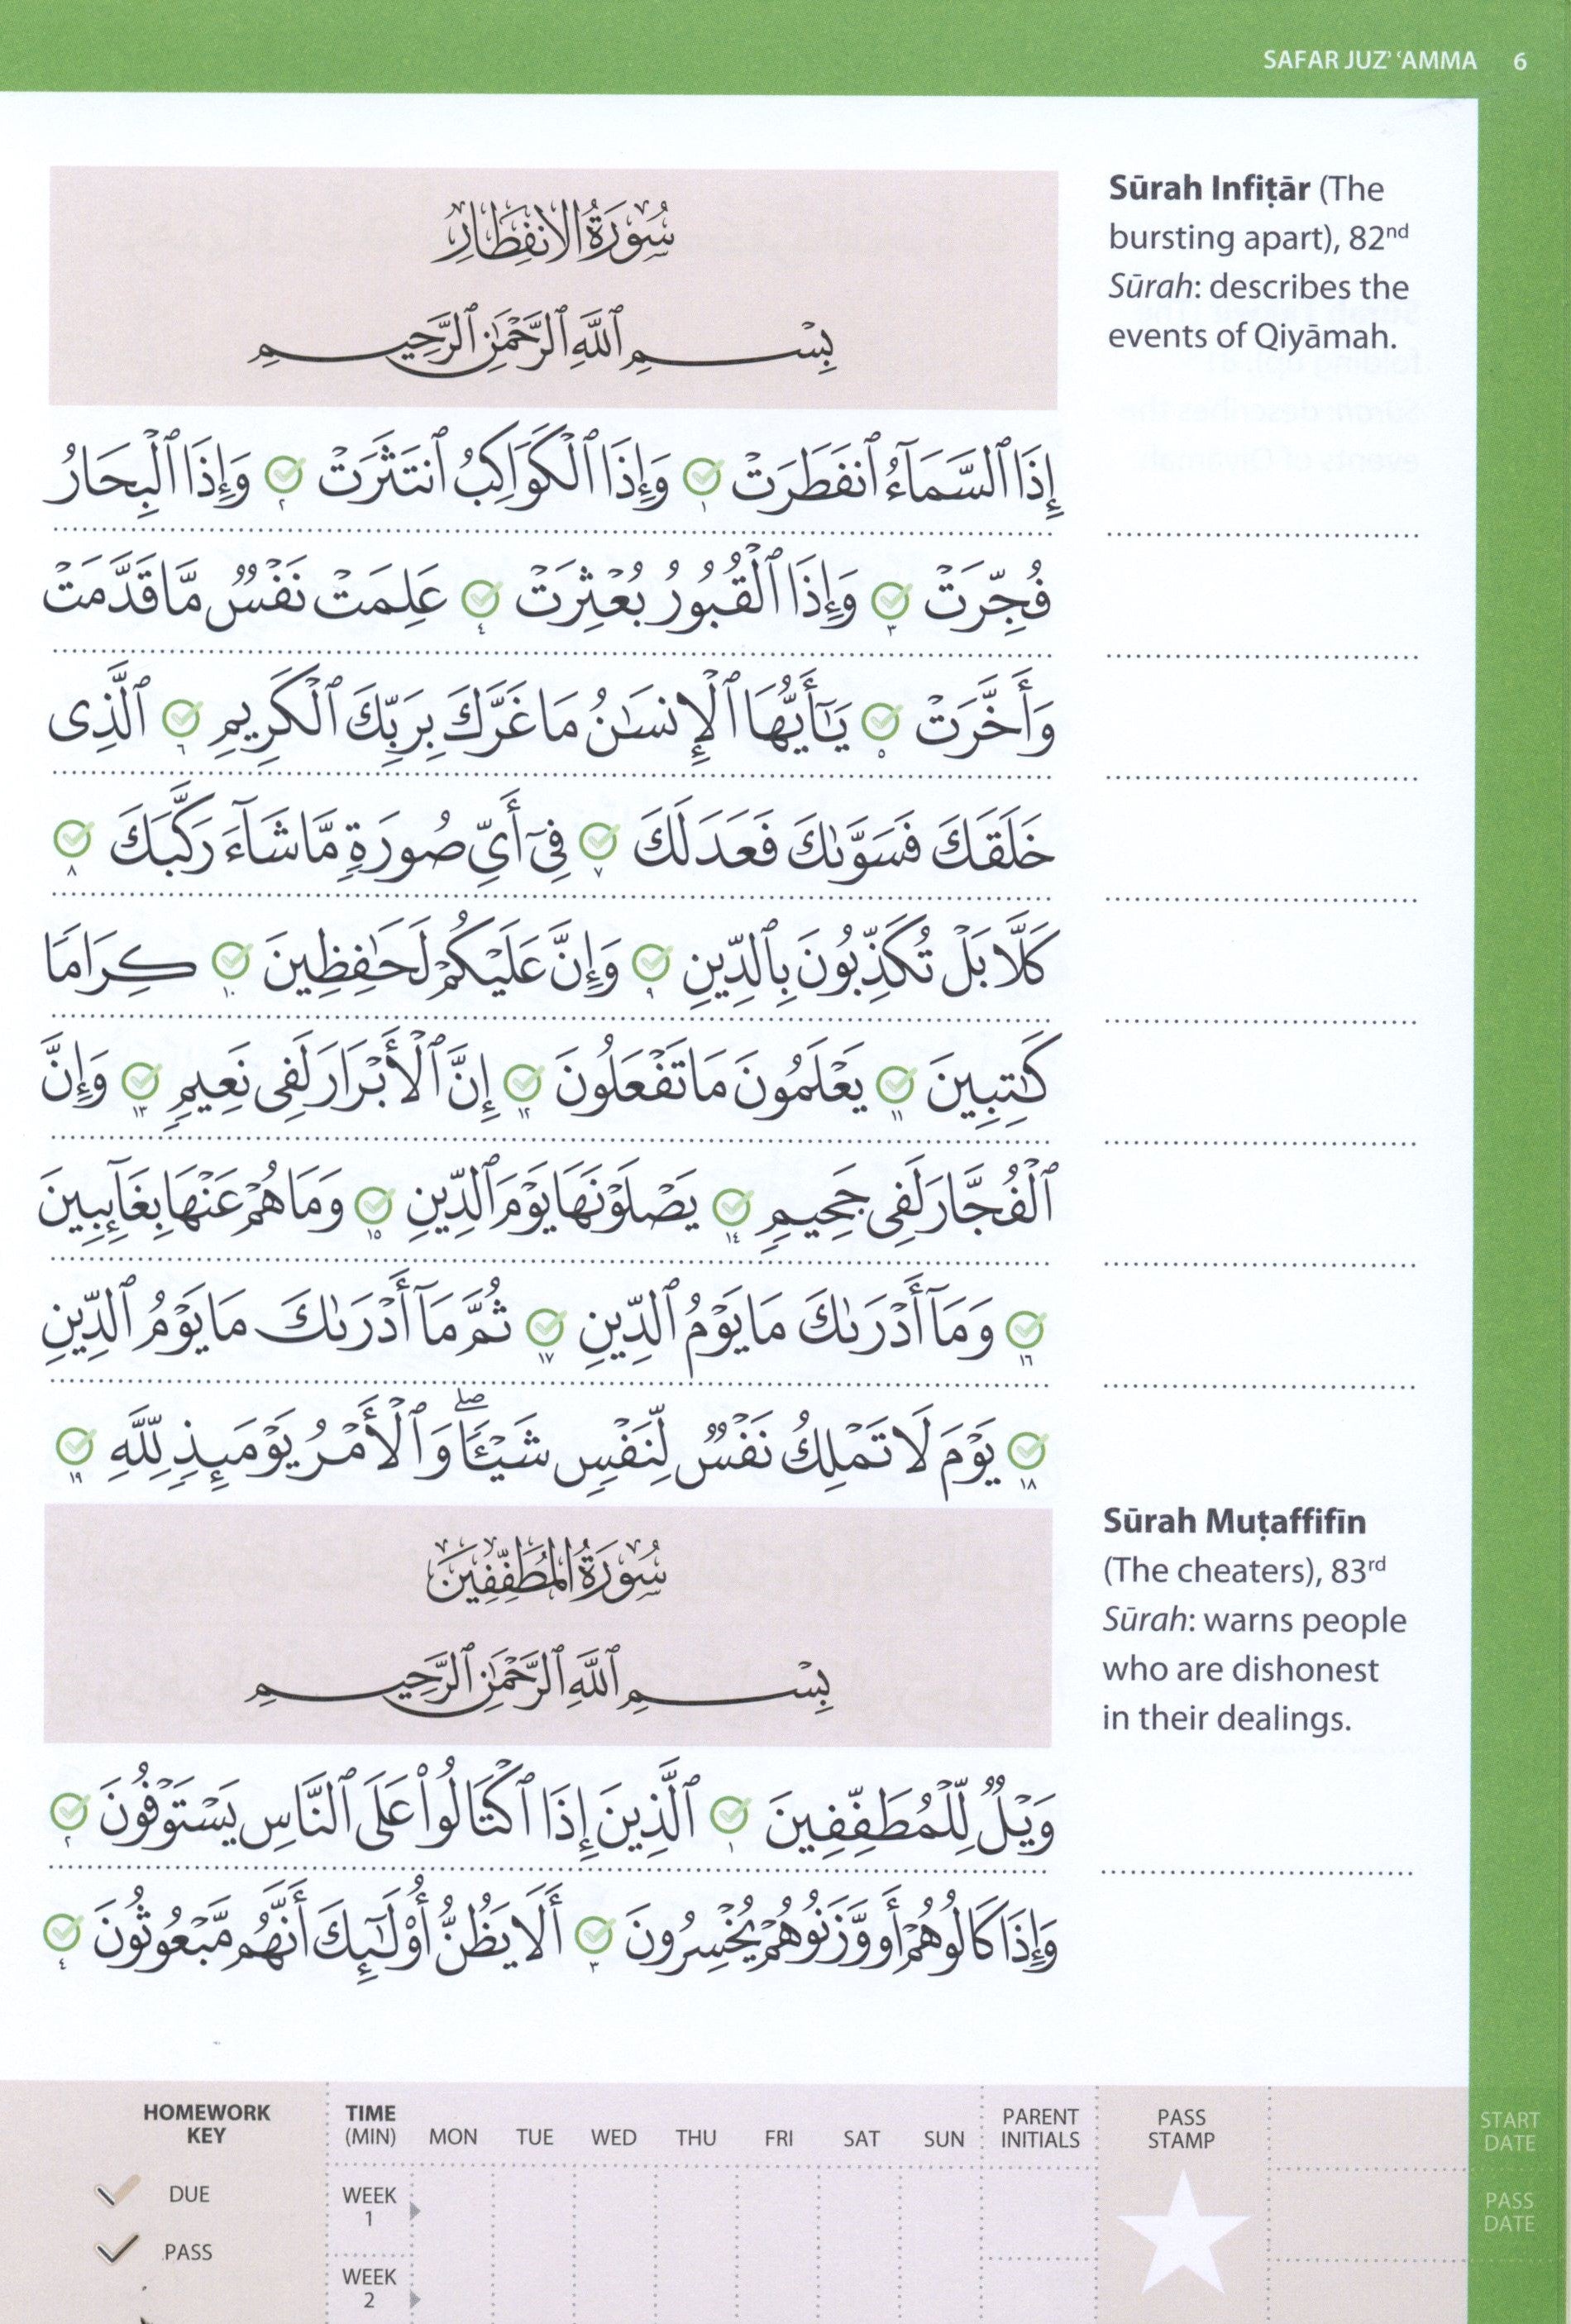 SAFAR JUZ’ ‘AMMA 6
سُورَةُ الانفِطَارِ
بِسْمِ ٱللَّهِ ٱلرَّحْمَٰنِ ٱلرَّحِيمِ
Sūrah Infiṭār (The
bursting apart), 82nd
Sūrah: describes the
events of Qiyāmah.
إِذَا ٱلسَّمَآءُ ٱنفَطَرَتْ ١ وَإِذَا ٱلْكَوَاكِبُ ٱنتَثَرَتْ ٢ وَإِذَا ٱلْبِحَارُ
فُجِّرَتْ ٣ وَإِذَا ٱلْقُبُورُ بُعْثِرَتْ ٤ عَلِمَتْ نَفْسٌ مَّا قَدَّمَتْ
وَأَخَّرَتْ ٥ يَٰٓأَيُّهَا ٱلْإِنسَٰنُ مَا غَرَّكَ بِرَبِّكَ ٱلْكَرِيمِ ٦ ٱلَّذِى
خَلَقَكَ فَسَوَّىٰكَ فَعَدَلَكَ ٧ فِىٓ أَىِّ صُورَةٍ مَّا شَآءَ رَكَّبَكَ ٨
كَلَّا بَلْ تُكَذِّبُونَ بِٱلدِّينِ ٩ وَإِنَّ عَلَيْكُمْ لَحَٰفِظِينَ ١٠ كِرَامًا
كَٰتِبِينَ ١١ يَعْلَمُونَ مَا تَفْعَلُونَ ١٢ إِنَّ ٱلْأَبْرَارَ لَفِى نَعِيمٍ ١٣ وَإِنَّ
ٱلْفُجَّارَ لَفِى جَحِيمٍ ١٤ يَصْلَوْنَهَا يَوْمَ ٱلدِّينِ ١٥ وَمَا هُمْ عَنْهَا بِغَآئِبِينَ
١٦ وَمَآ أَدْرَىٰكَ مَا يَوْمُ ٱلدِّينِ ١٧ ثُمَّ مَآ أَدْرَىٰكَ مَا يَوْمُ ٱلدِّينِ
١٨ يَوْمَ لَا تَمْلِكُ نَفْسٌ لِّنَفْسٍ شَيْـًٔا ۖ وَٱلْأَمْرُ يَوْمَئِذٍ لِّلَّهِ ١٩
سُورَةُ المُطَفِّفِينَ
بِسْمِ ٱللَّهِ ٱلرَّحْمَٰنِ ٱلرَّحِيمِ
Sūrah Muṭaffifīn
(The cheaters), 83rd
Sūrah: warns people
who are dishonest
in their dealings.
وَيْلٌ لِّلْمُطَفِّفِينَ ١ ٱلَّذِينَ إِذَا ٱكْتَالُوا۟ عَلَى ٱلنَّاسِ يَسْتَوْفُونَ ٢
وَإِذَا كَالُوهُمْ أَو وَّزَنُوهُمْ يُخْسِرُونَ ٣ أَلَا يَظُنُّ أُو۟لَٰٓئِكَ أَنَّهُم مَّبْعُوثُونَ ٤
HOMEWORK
KEY
DUE
PASS
TIME
(MIN) MON TUE WED THU FRI SAT SUN
PARENT
INITIALS
PASS
STAMP
START
DATE
PASS
DATE
WEEK
1
WEEK
2